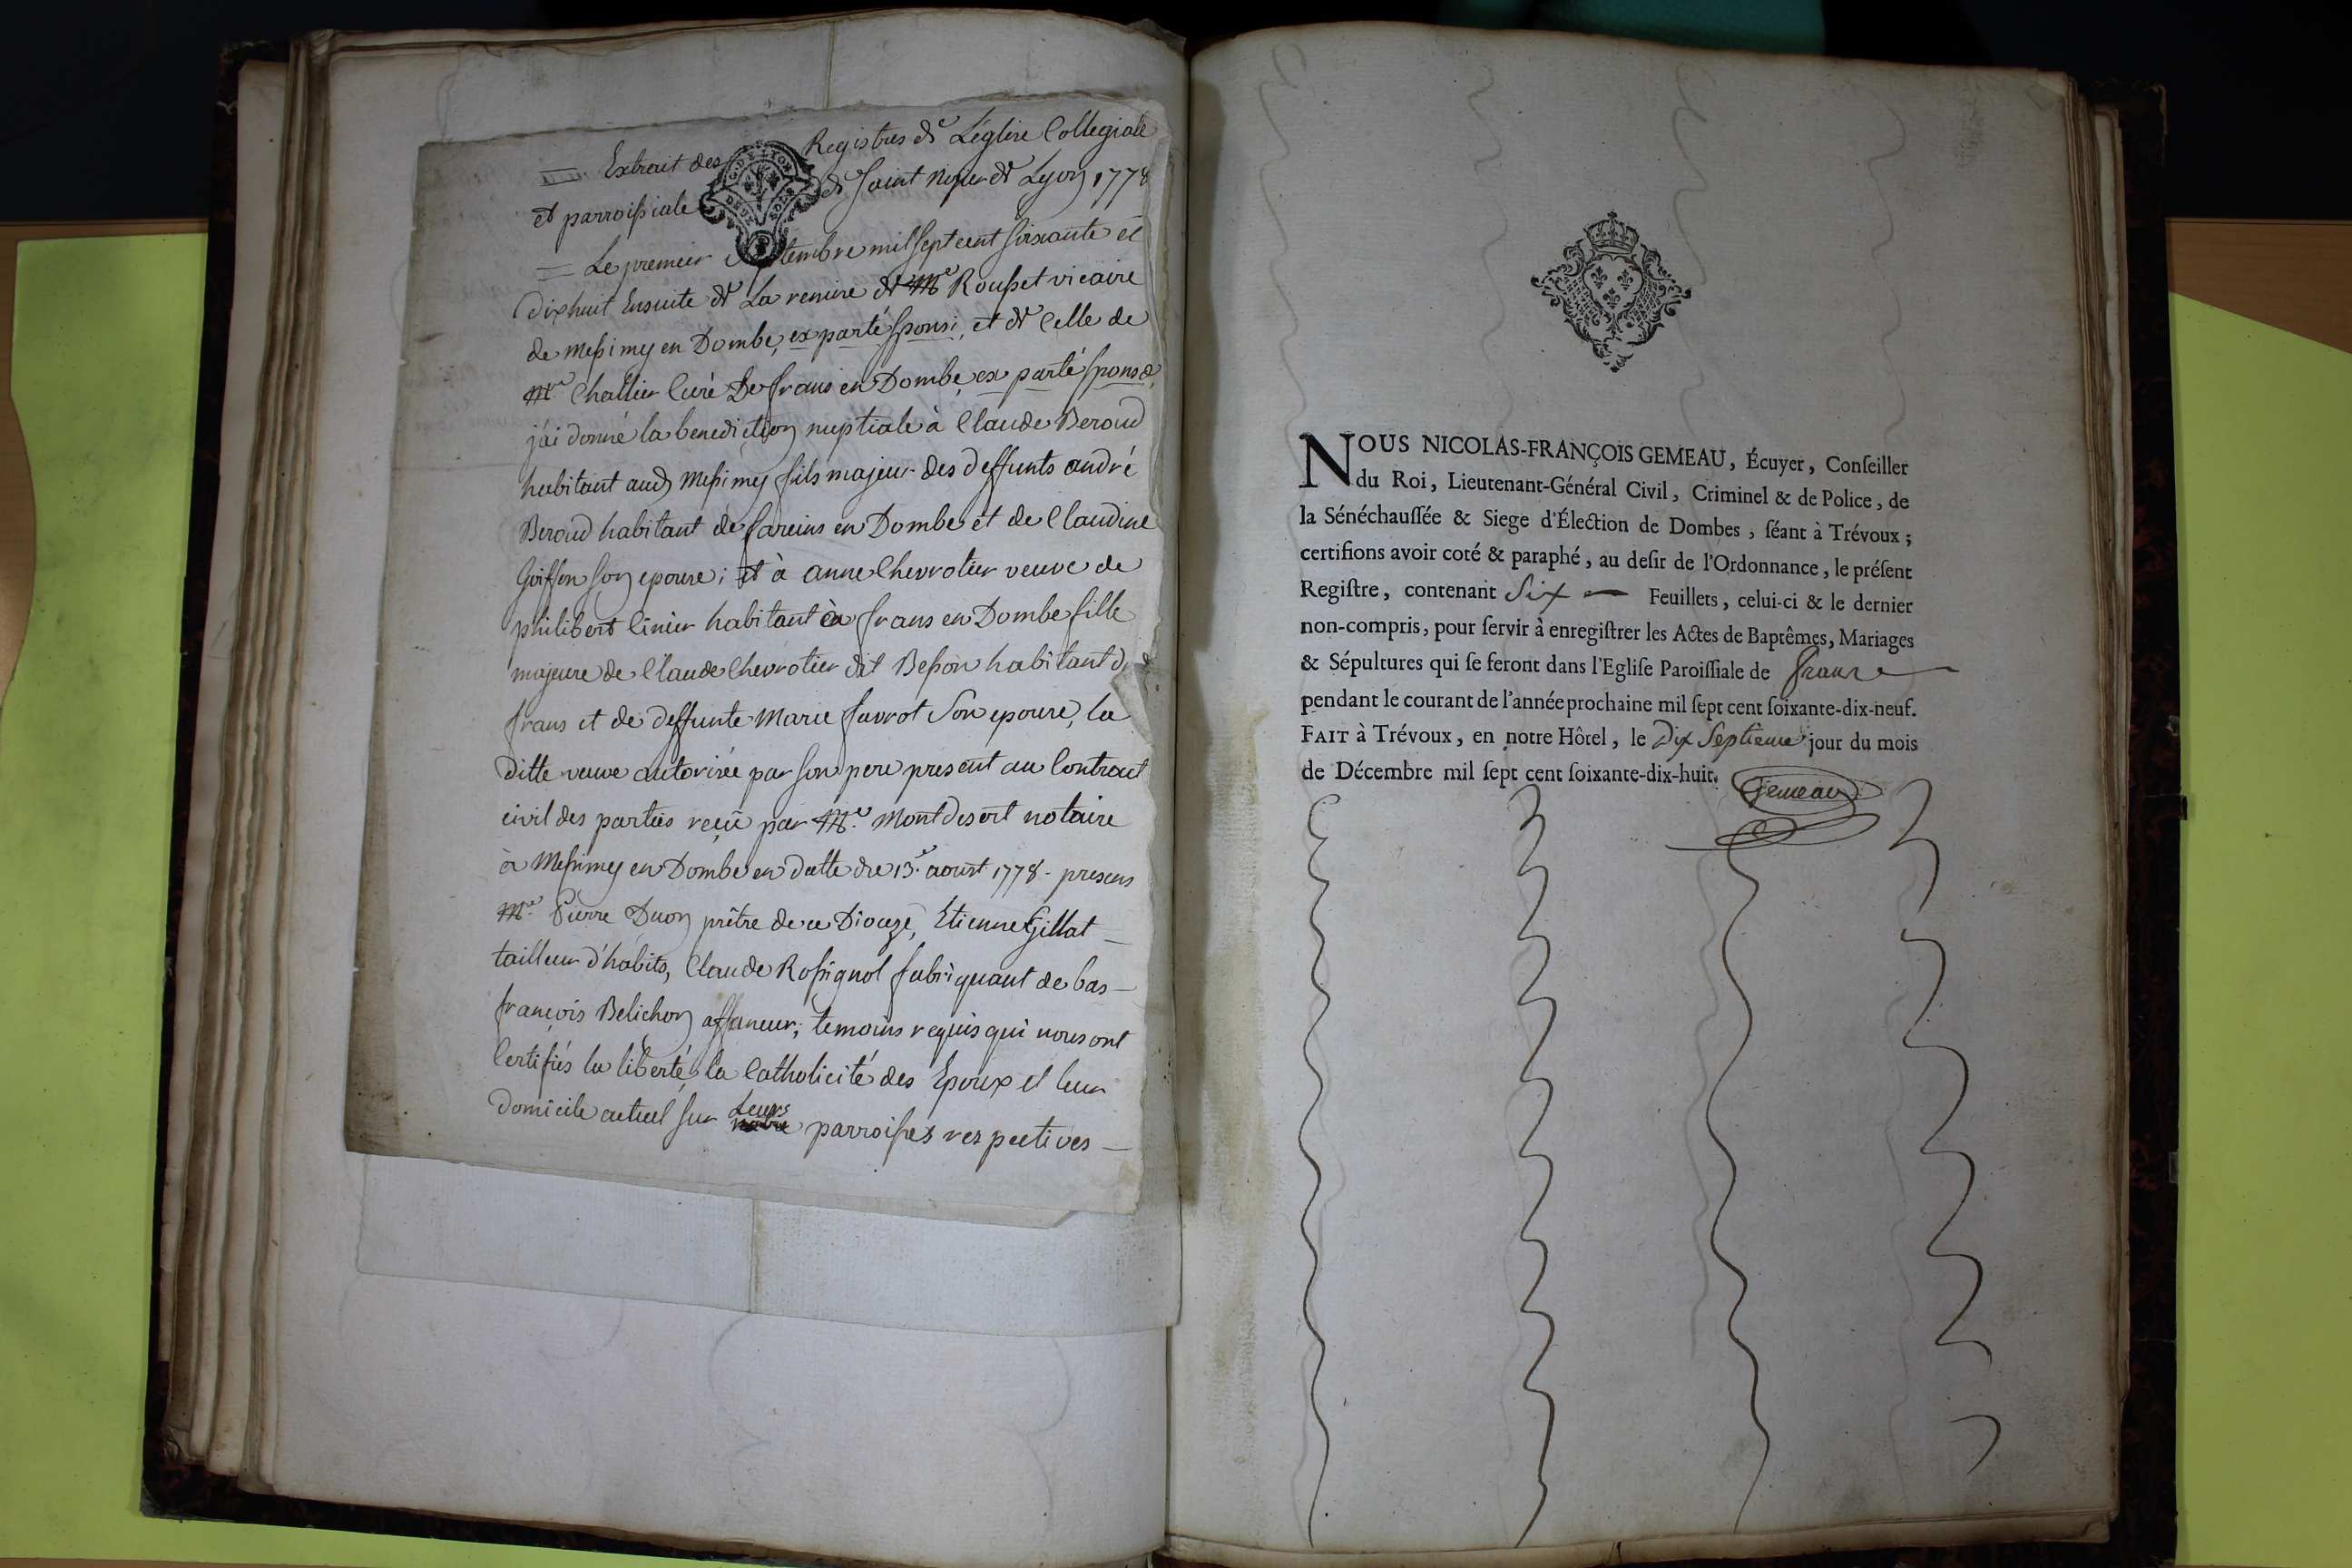 Extrait des Registres de L'églire Collegiale
et parroissiale de saint nizier de Lyon 1778
Le premier septembre mil sept cent soixante et
dixhuit Ensuite de La remire de Mre Rousset vicaire
de messimy en Dombe, ex parté sponsi, et de Celle de
Mre Challier Curé De frans en Dombe, ex parté sponsæ,
j'ai donné la benediction nuptiale à Claude Beroud
habitant aud messimy fils majeur des deffunts andré
Beroud habitant de fareins en Dombe et de Claudine
Goiffon son epouse; et à anne Chevrotier veuve de
philibert Cinier habitant à frans en Dombe fille
majeure de Claude Chevrotier dit Besson habitant de
frans et de deffunte Marie favrot Son epouse, la
ditte veuve autorisée par son pere present au Contract
civil des parties reçü par Me. Montdesert notaire
à Messimy en Dombe en datte du 13e aoust 1778 - presens
Mre. Pierre Duon prêtre de ce Dioceze, Etienne Gillat
tailleur d'habits, Claude Rossignol fabriquant de bas
françois Belichon affaneur, temoins requis qui nous ont
Certifiés la liberté, la Catholicité des Epoux et leur
Leurs
domicile actuel sur notre parroisses respectives
NOUS NICOLAS-FRANÇOIS GEMEAU, Écuyer, Conſeiller
du Roi, Lieutenant-Général Civil, Criminel & de Police, de
la Sénéchauſſée & Siege d'Élection de Dombes, ſéant à Trévoux;
certifions avoir coté & paraphé, au deſir de l'Ordonnance, le préſent
Regiſtre, contenant Six Feuillets, celui-ci & le dernier
non-compris, pour ſervir à enregiſtrer les Actes de Baptêmes, Mariages
& Sépultures qui ſe feront dans l'Egliſe Paroiſſiale de frans
pendant le courant de l'année prochaine mil ſept cent ſoixante-dix-neuf.
FAIT à Trévoux, en notre Hôtel, le Dix Septieme jour du mois
de Décembre mil ſept cent ſoixante-dix-huit. Gemeau